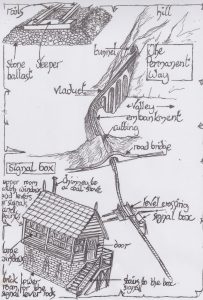 Rails
hill
tunnel
The
Permanent
Way
Stone
ballast
Sleeper
Viaduct
Valley
embankment
cutting
road bridge
Signal box
upper room
with windows
and levers
chimney to
a coal stove
level crossing
signal box
door
brick lower
room for the
signal lever rods
stairs to the box